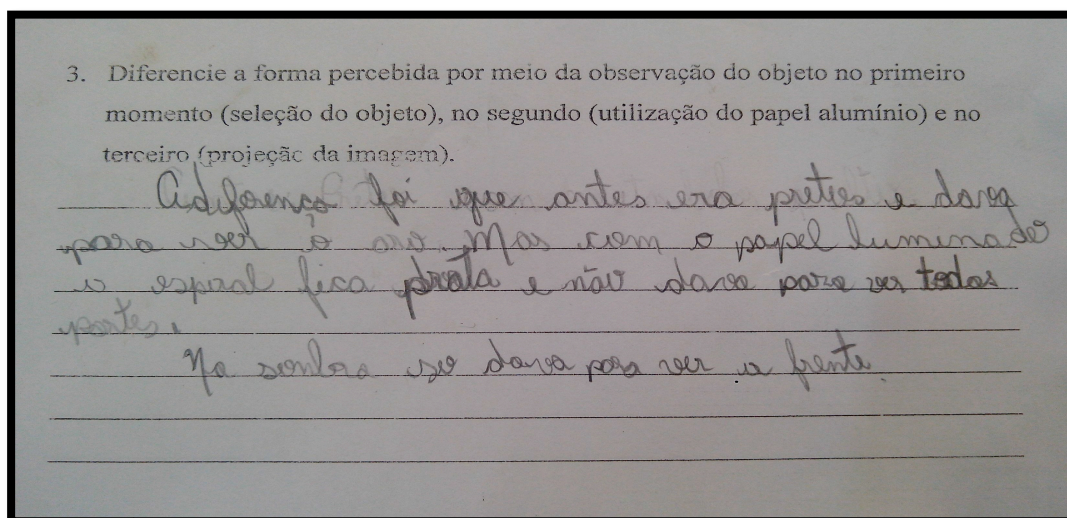 3. Diferencie a forma percebida por meio da observação do objeto no primeiro
momento (seleção do objeto), no segundo (utilização do papel alumínio) e no
terceiro (projeção da imagem).
Adiferença foi que antes era preto e dava
para ver o aro. Mas com o papel luminado
o espiral fica prata e não dava para ver todas
partes.
Na sombra so dava para ver a frente.